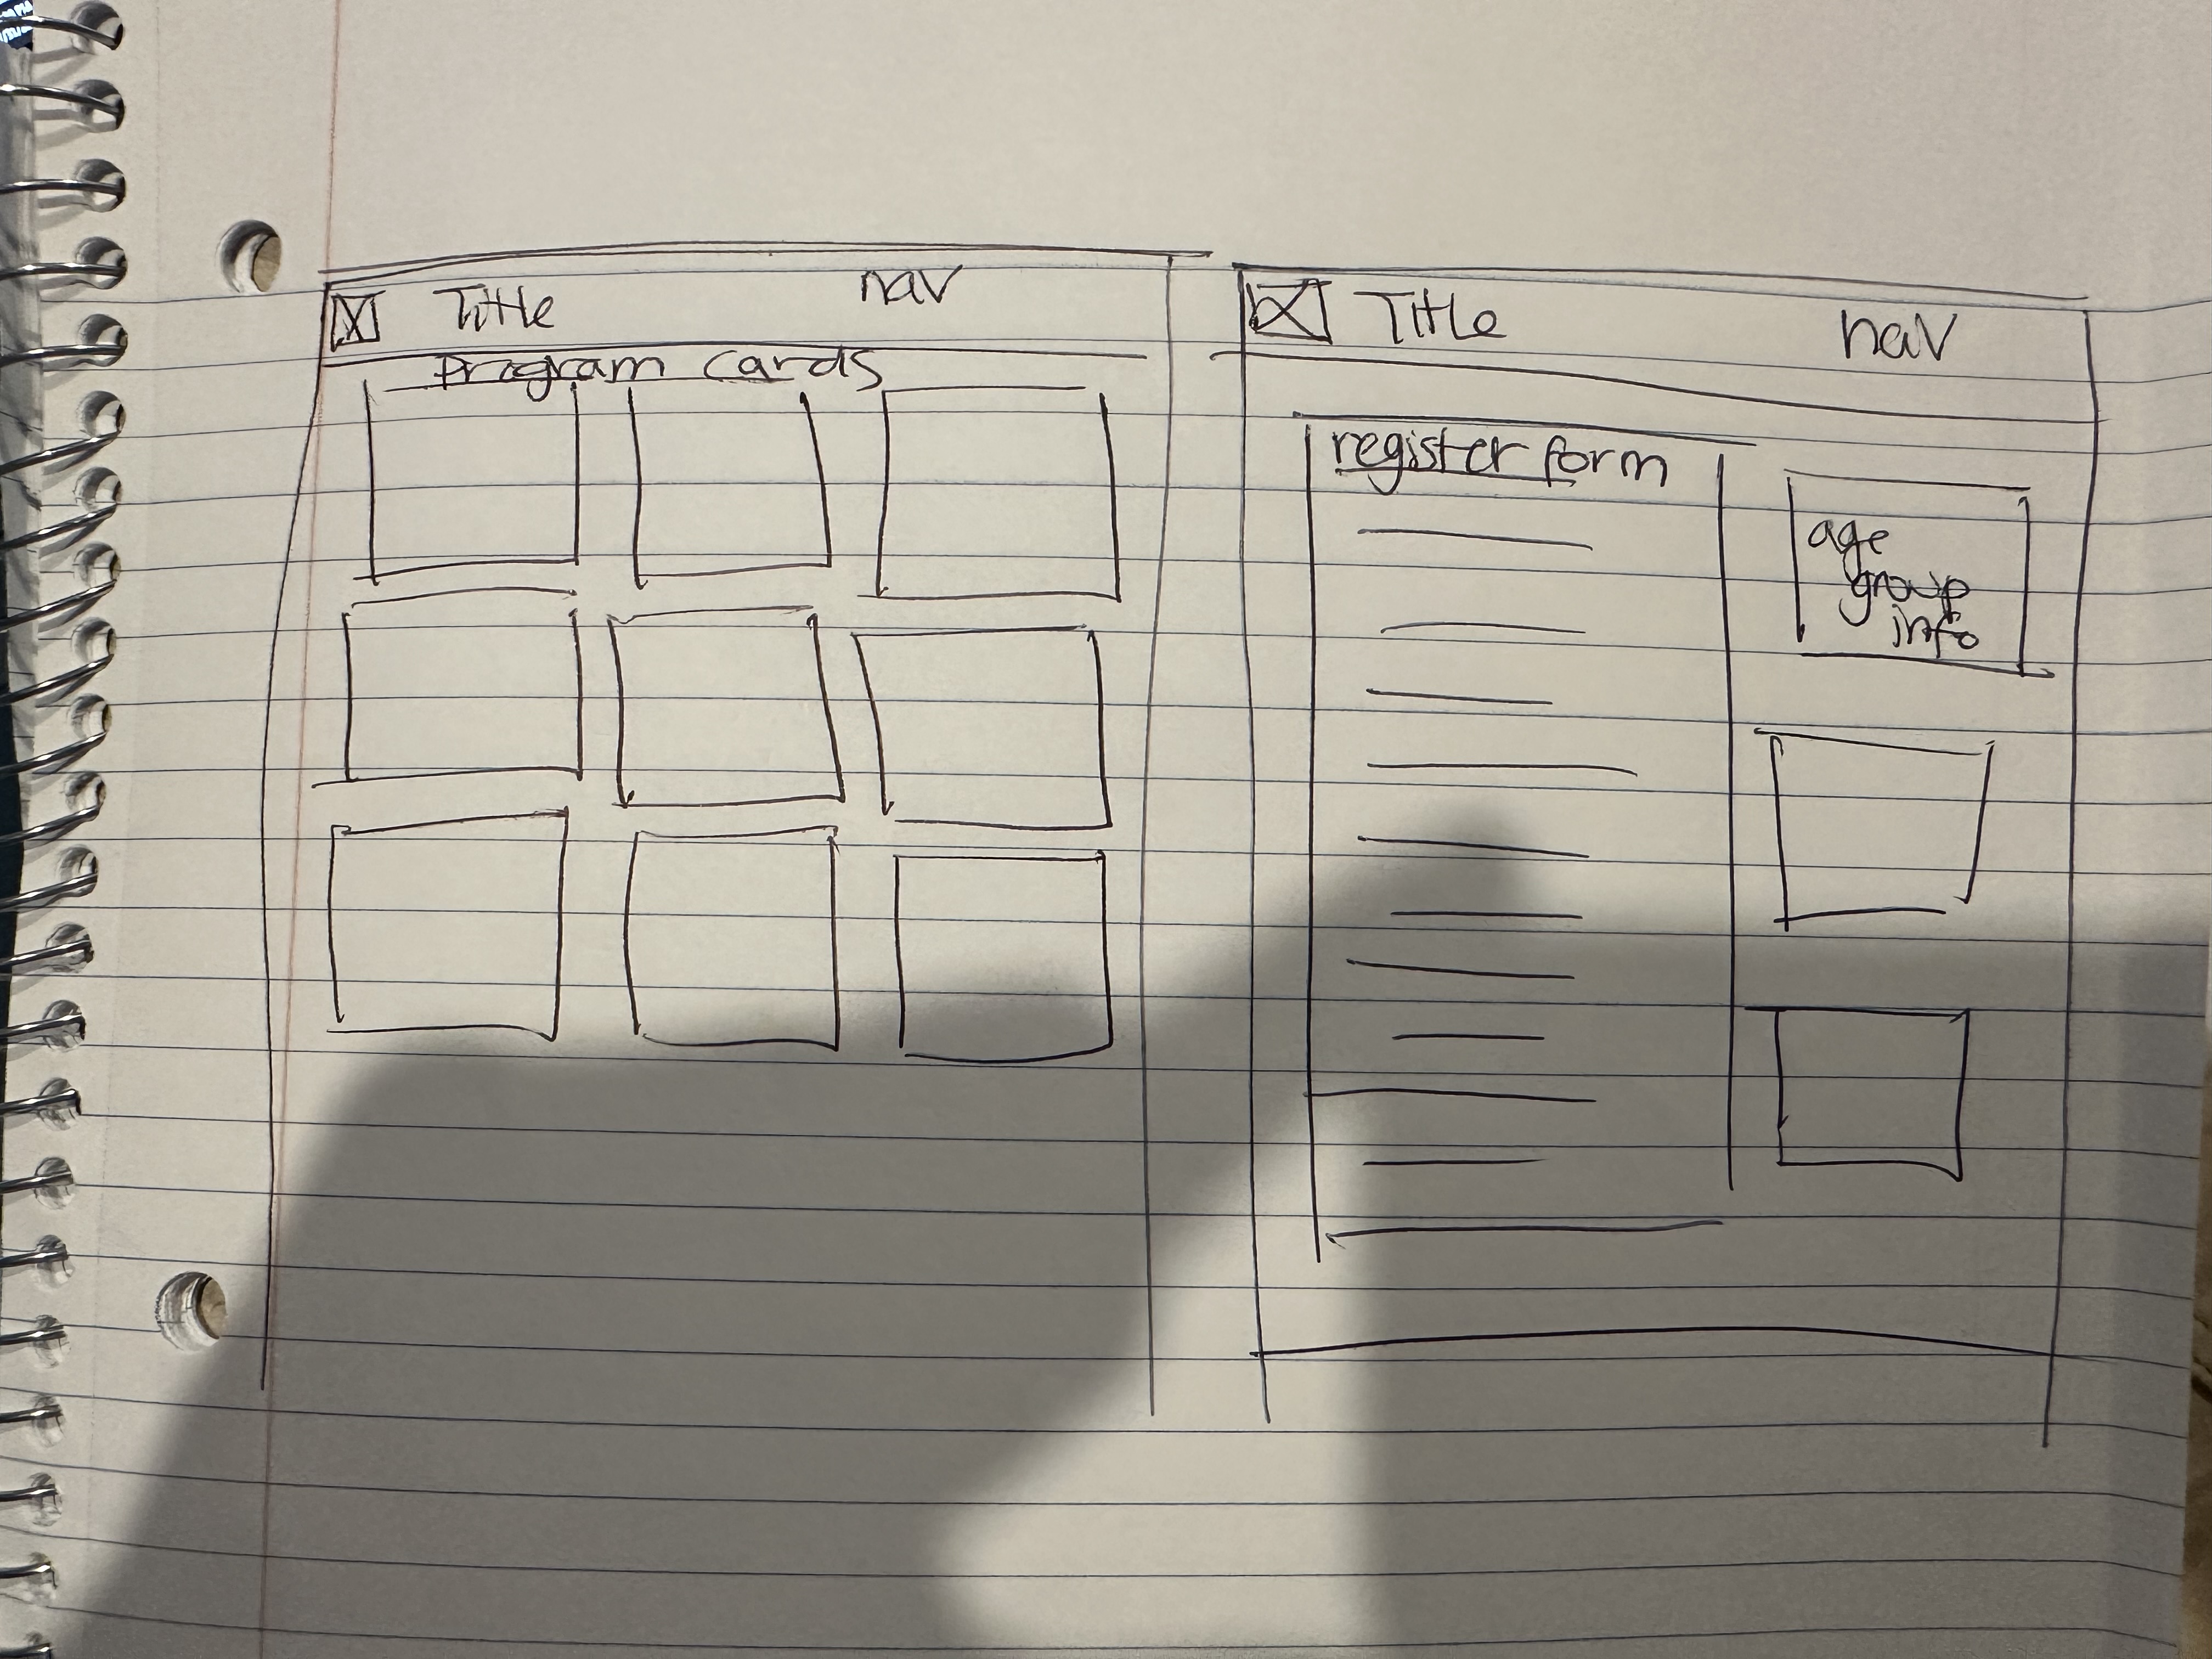 Title
nav
Program Cards
Title
nav
register form
age
group
info